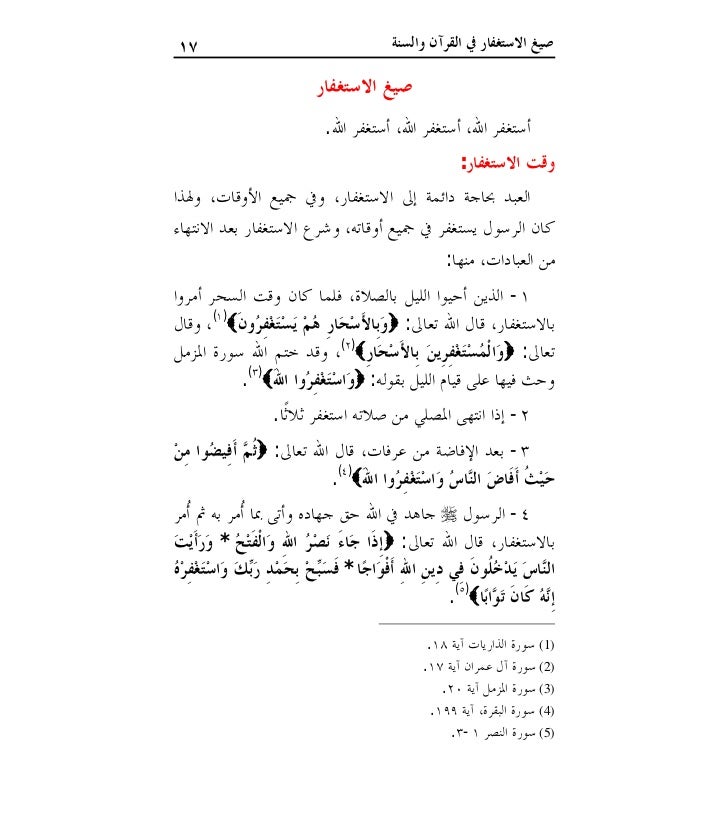 صيغ الاستغفار في القرآن والسنة ١٧
صيغ الاستغفار
أستغفر الله، أستغفر الله، أستغفر الله.
وقت الاستغفار:
العبد بحاجة دائمة إلى الاستغفار، وفي جميع الأوقات، ولهذا
كان الرسول يستغفر في جميع أوقاته، وشرع الاستغفار بعد الانتهاء
من العبادات، منها:
١ - الذين أحيوا الليل بالصلاة، فلما كان وقت السحر أمروا
بالاستغفار، قال الله تعالى: ﴿وَبِالأَسْحَارِ هُمْ يَسْتَغْفِرُونَ﴾(١)، وقال
تعالى: ﴿وَالْمُسْتَغْفِرِينَ بِالأَسْحَارِ﴾(٢)، وقد ختم الله سورة المزمل
وحث فيها على قيام الليل بقوله: ﴿وَاسْتَغْفِرُوا اللهَ﴾(٣).
٢ - إذا انتهى المصلي من صلاته استغفر ثلاثًا.
٣ - بعد الإفاضة من عرفات، قال الله تعالى: ﴿ثُمَّ أَفِيضُوا مِنْ
حَيْثُ أَفَاضَ النَّاسُ وَاسْتَغْفِرُوا اللهَ﴾(٤).
٤ - الرسول ﷺ جاهد في الله حق جهاده وأتى بما أُمر به ثم أُمر
بالاستغفار، قال الله تعالى: ﴿إِذَا جَاءَ نَصْرُ اللهِ وَالْفَتْحُ * وَرَأَيْتَ
النَّاسَ يَدْخُلُونَ فِي دِينِ اللهِ أَفْوَاجًا * فَسَبِّحْ بِحَمْدِ رَبِّكَ وَاسْتَغْفِرْهُ
إِنَّهُ كَانَ تَوَّابًا﴾(٥).
(1) سورة الذاريات آية ١٨.
(2) سورة آل عمران آية ١٧.
(3) سورة المزمل آية ٢٠.
(4) سورة البقرة، آية ١٩٩.
(5) سورة النصر ١ -٣.